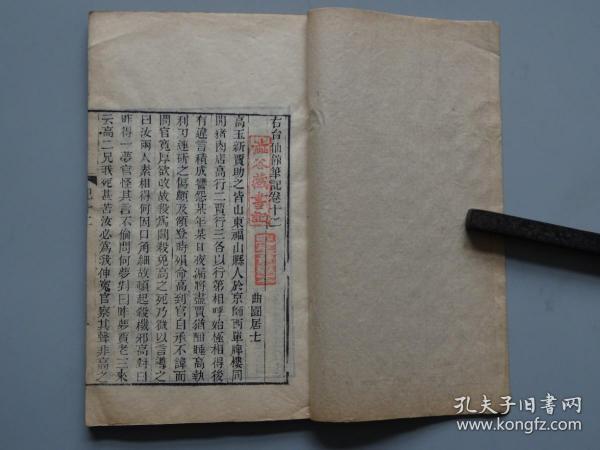 右台仙館筆記卷十二
曲園居士
高玉新賈助之皆山東福山縣人於京師西單牌樓同
開猪肉店高行二賈行三各以行第相呼始極相得後
有違言積成讐怨某年某日夜漏將盡賈猶酣睡高執
利刃連斫之傷顱及頸登時殞命高到官自承不諱而
問官寬厚欲改故殺爲鬬殺免高之死乃微以言導之
曰汝兩人素相得何因口角細故頓起殺機邪高對曰
昨得一夢官怪其言不倫問何夢對曰昨夢賈老三來
云高二兄我死甚苦汝必爲我伸冤官察其聲非高之
藏書記
孔夫子旧书网
www.kongfz.com